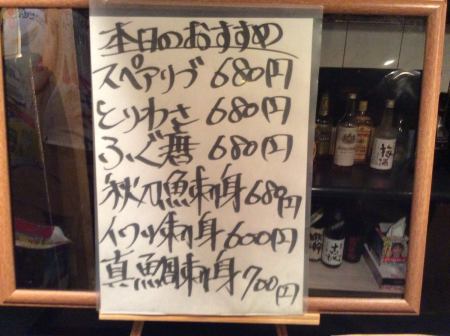 本日のおすすめ
スペアリブ 680円
とりわさ 680円
ふぐ唐 680円
秋刀魚刺身 680円
イワシ刺身 600円
真鯛刺身 700円
梅酒